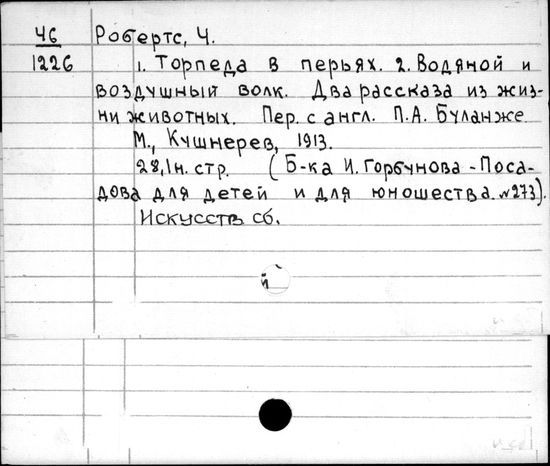 Ч6 Робертс, Ч.
1226 1. Торпеда в перьях. 2. Водяной и
воздушный волк. Два рассказа из жиз-
ни животных. Пер. с англ. П.А. Буланже
М., Кушнерев, 1913.
28,1н. стр. (Б-ка И. Горбунова-Поса-
дова для детей и для юношества. №273).
Искусств сб.
й